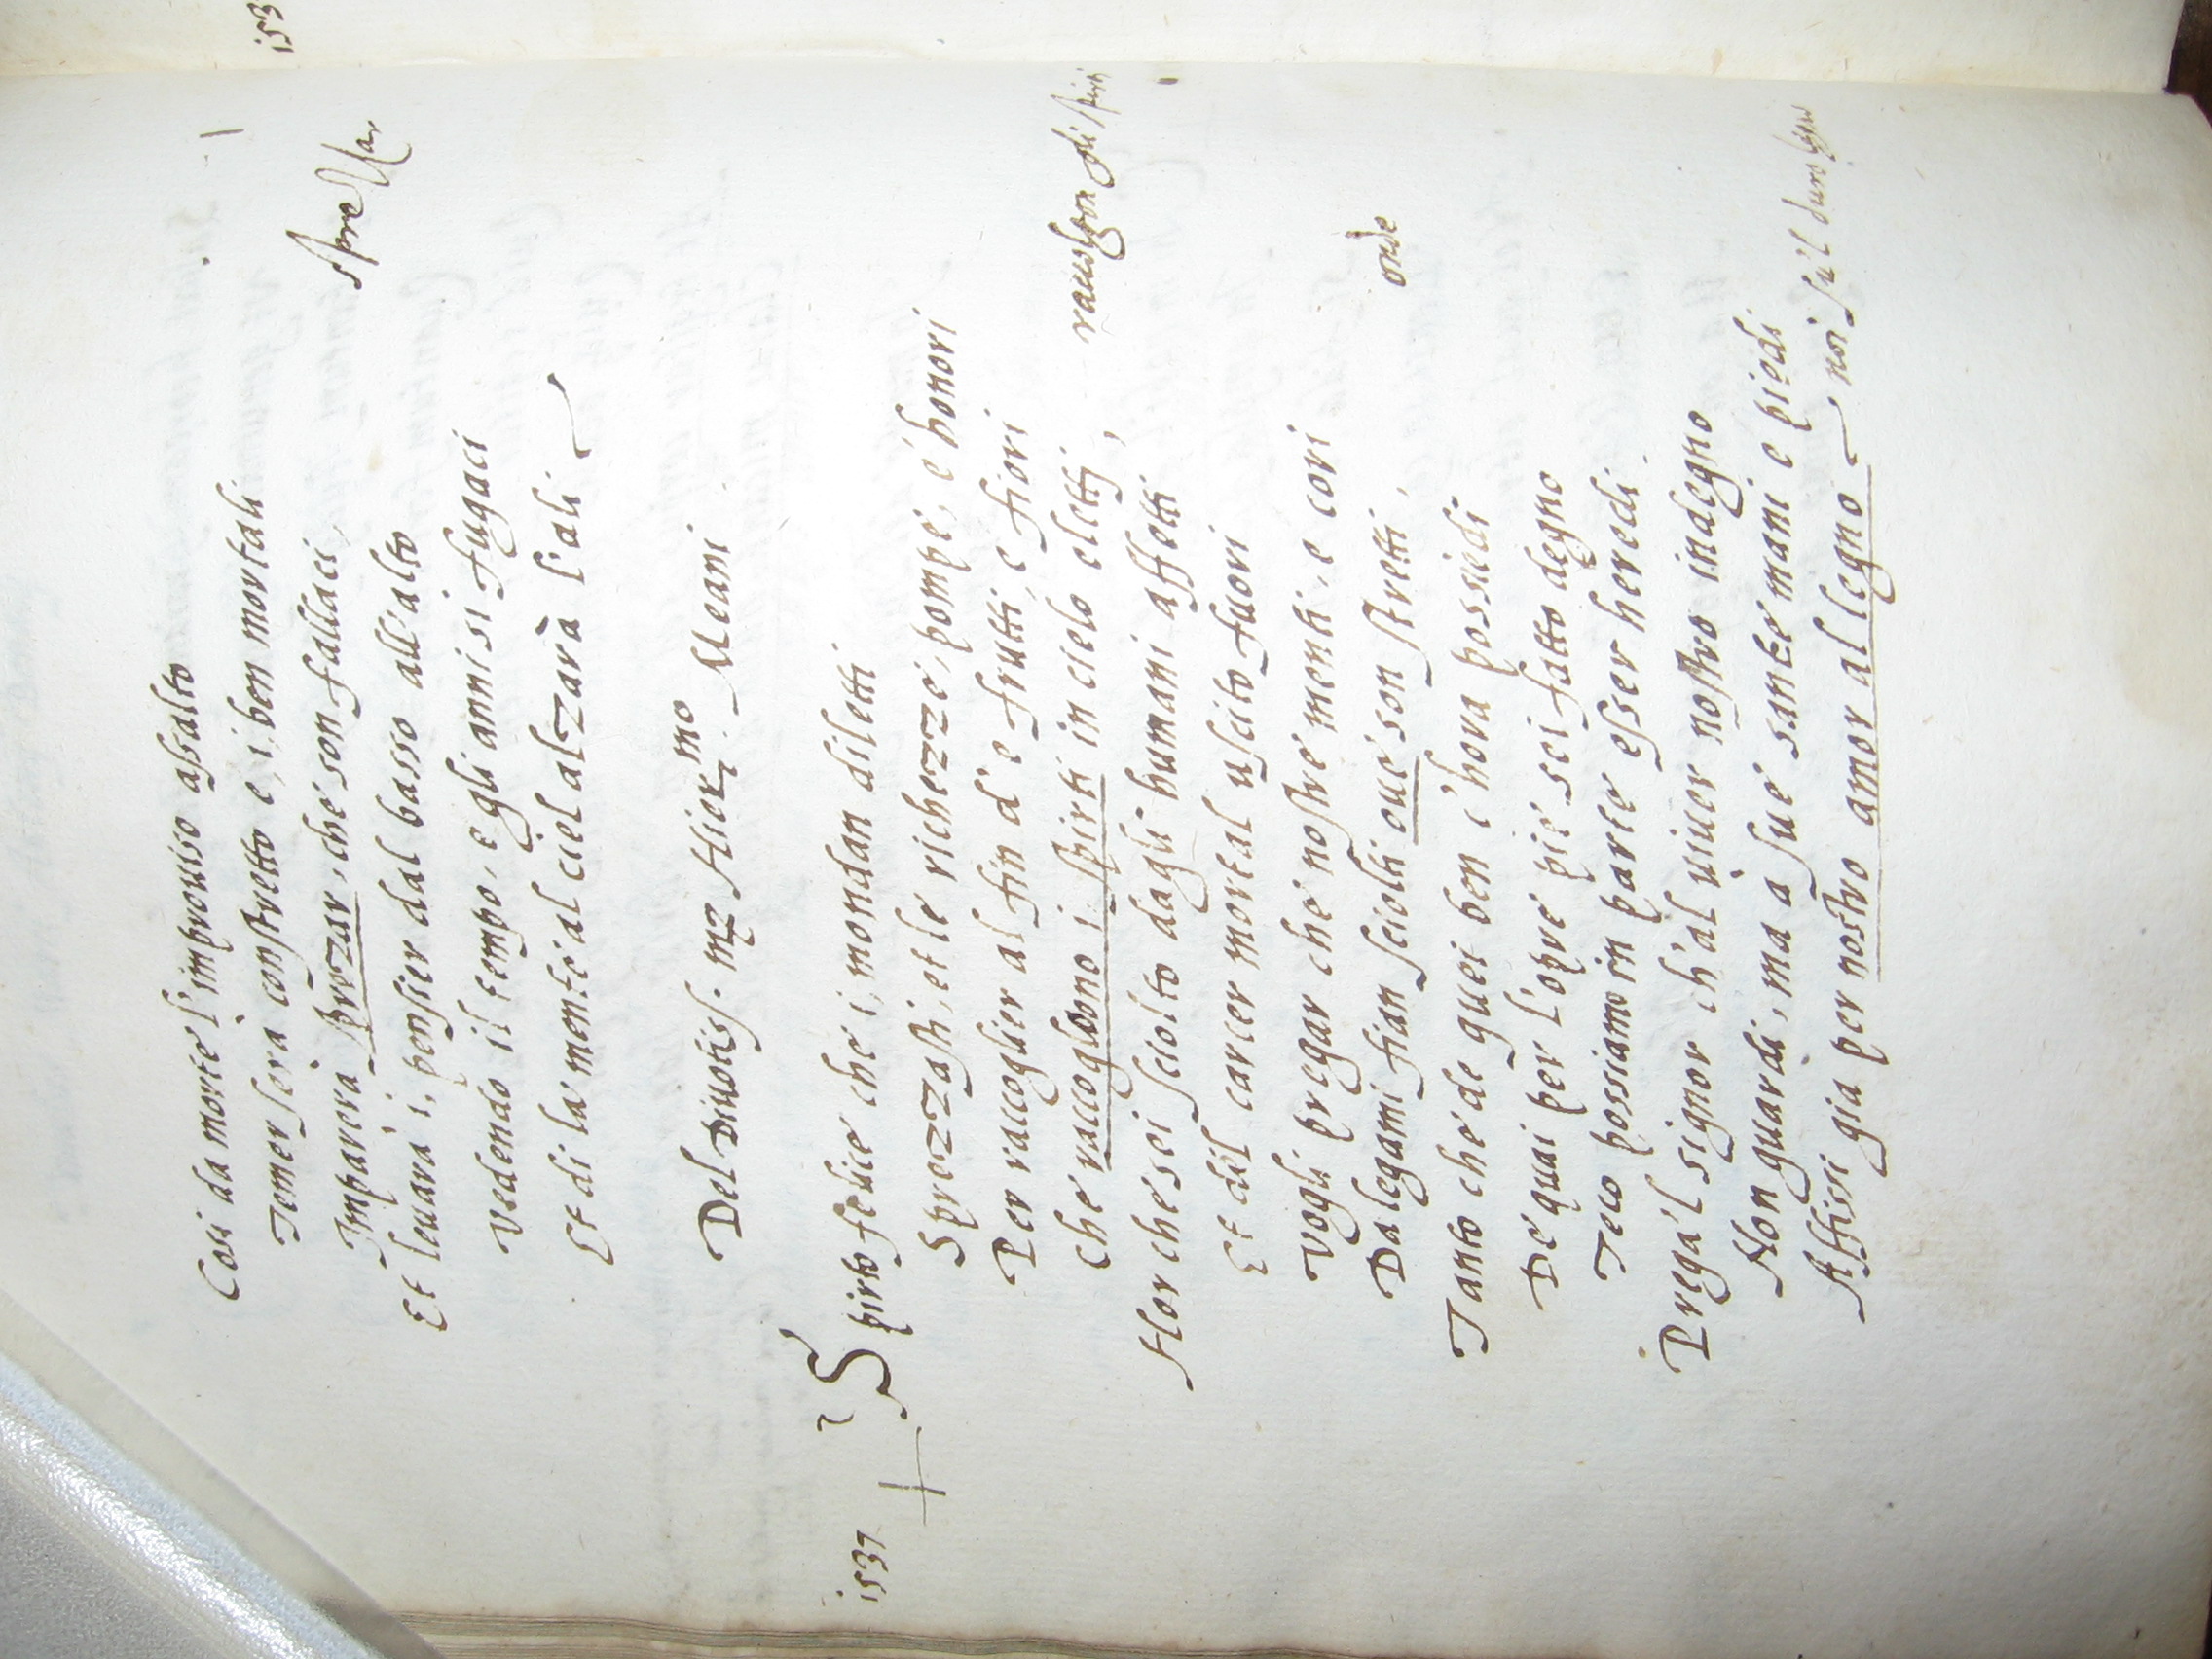 Cosi da morte l'improuiso assalto
Temer serà constretto e, i, ben mortali
Imparera sprezar, che son fallaci,
sprezzar
Et leuara i, pensier dal basso all'alto
Vedendo il tempo, e gli anni si fugaci
Et di la mente al ciel alzarà l'ali
Del Diuotiss. mz Hier.mo Meani
1537
Spirto felice che i, mondan diletti
Sprezzasti, et le richezze, pompe, e honori
Per raccoglier al fin d'e frutti, e fiori
Che raccoglono i, spirti in cielo eletti,
raccolgon gli spirti
Hor che sei sciolto dagli humani affetti
Et dil carcer mortal uscito fuori
Vogli pregar che nostre menti, e cori
Da legami fian sciolti oue son stretti,
onde
Tanto che de quei ben c'hora possiedi
De quai per l'opre pie sei fatto degno
Teco possiamo in parte esser heredi.
Prega'l signor ch'al uiuer nostro indegno
Non guardi, ma a sue sante mani e piedi
Affissi gia per nostro amor al legno
noi su'l duro legno
153